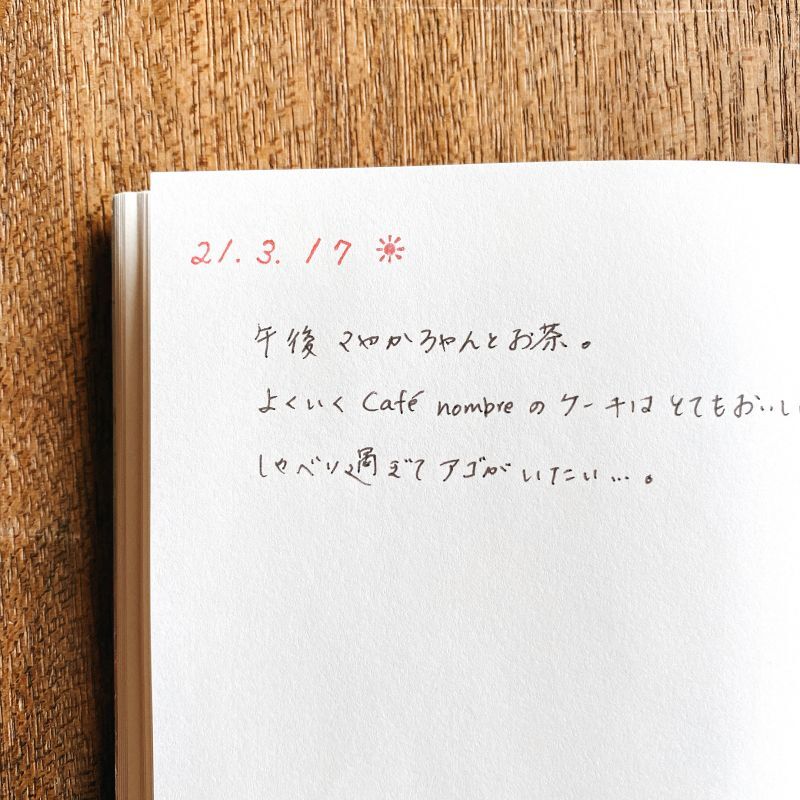 21.3.17 ☀
午後 さやかちゃんとお茶。
よくいく Café nombre の ケーキは とてもおいし
しゃべり過ぎて アゴが いたい…。